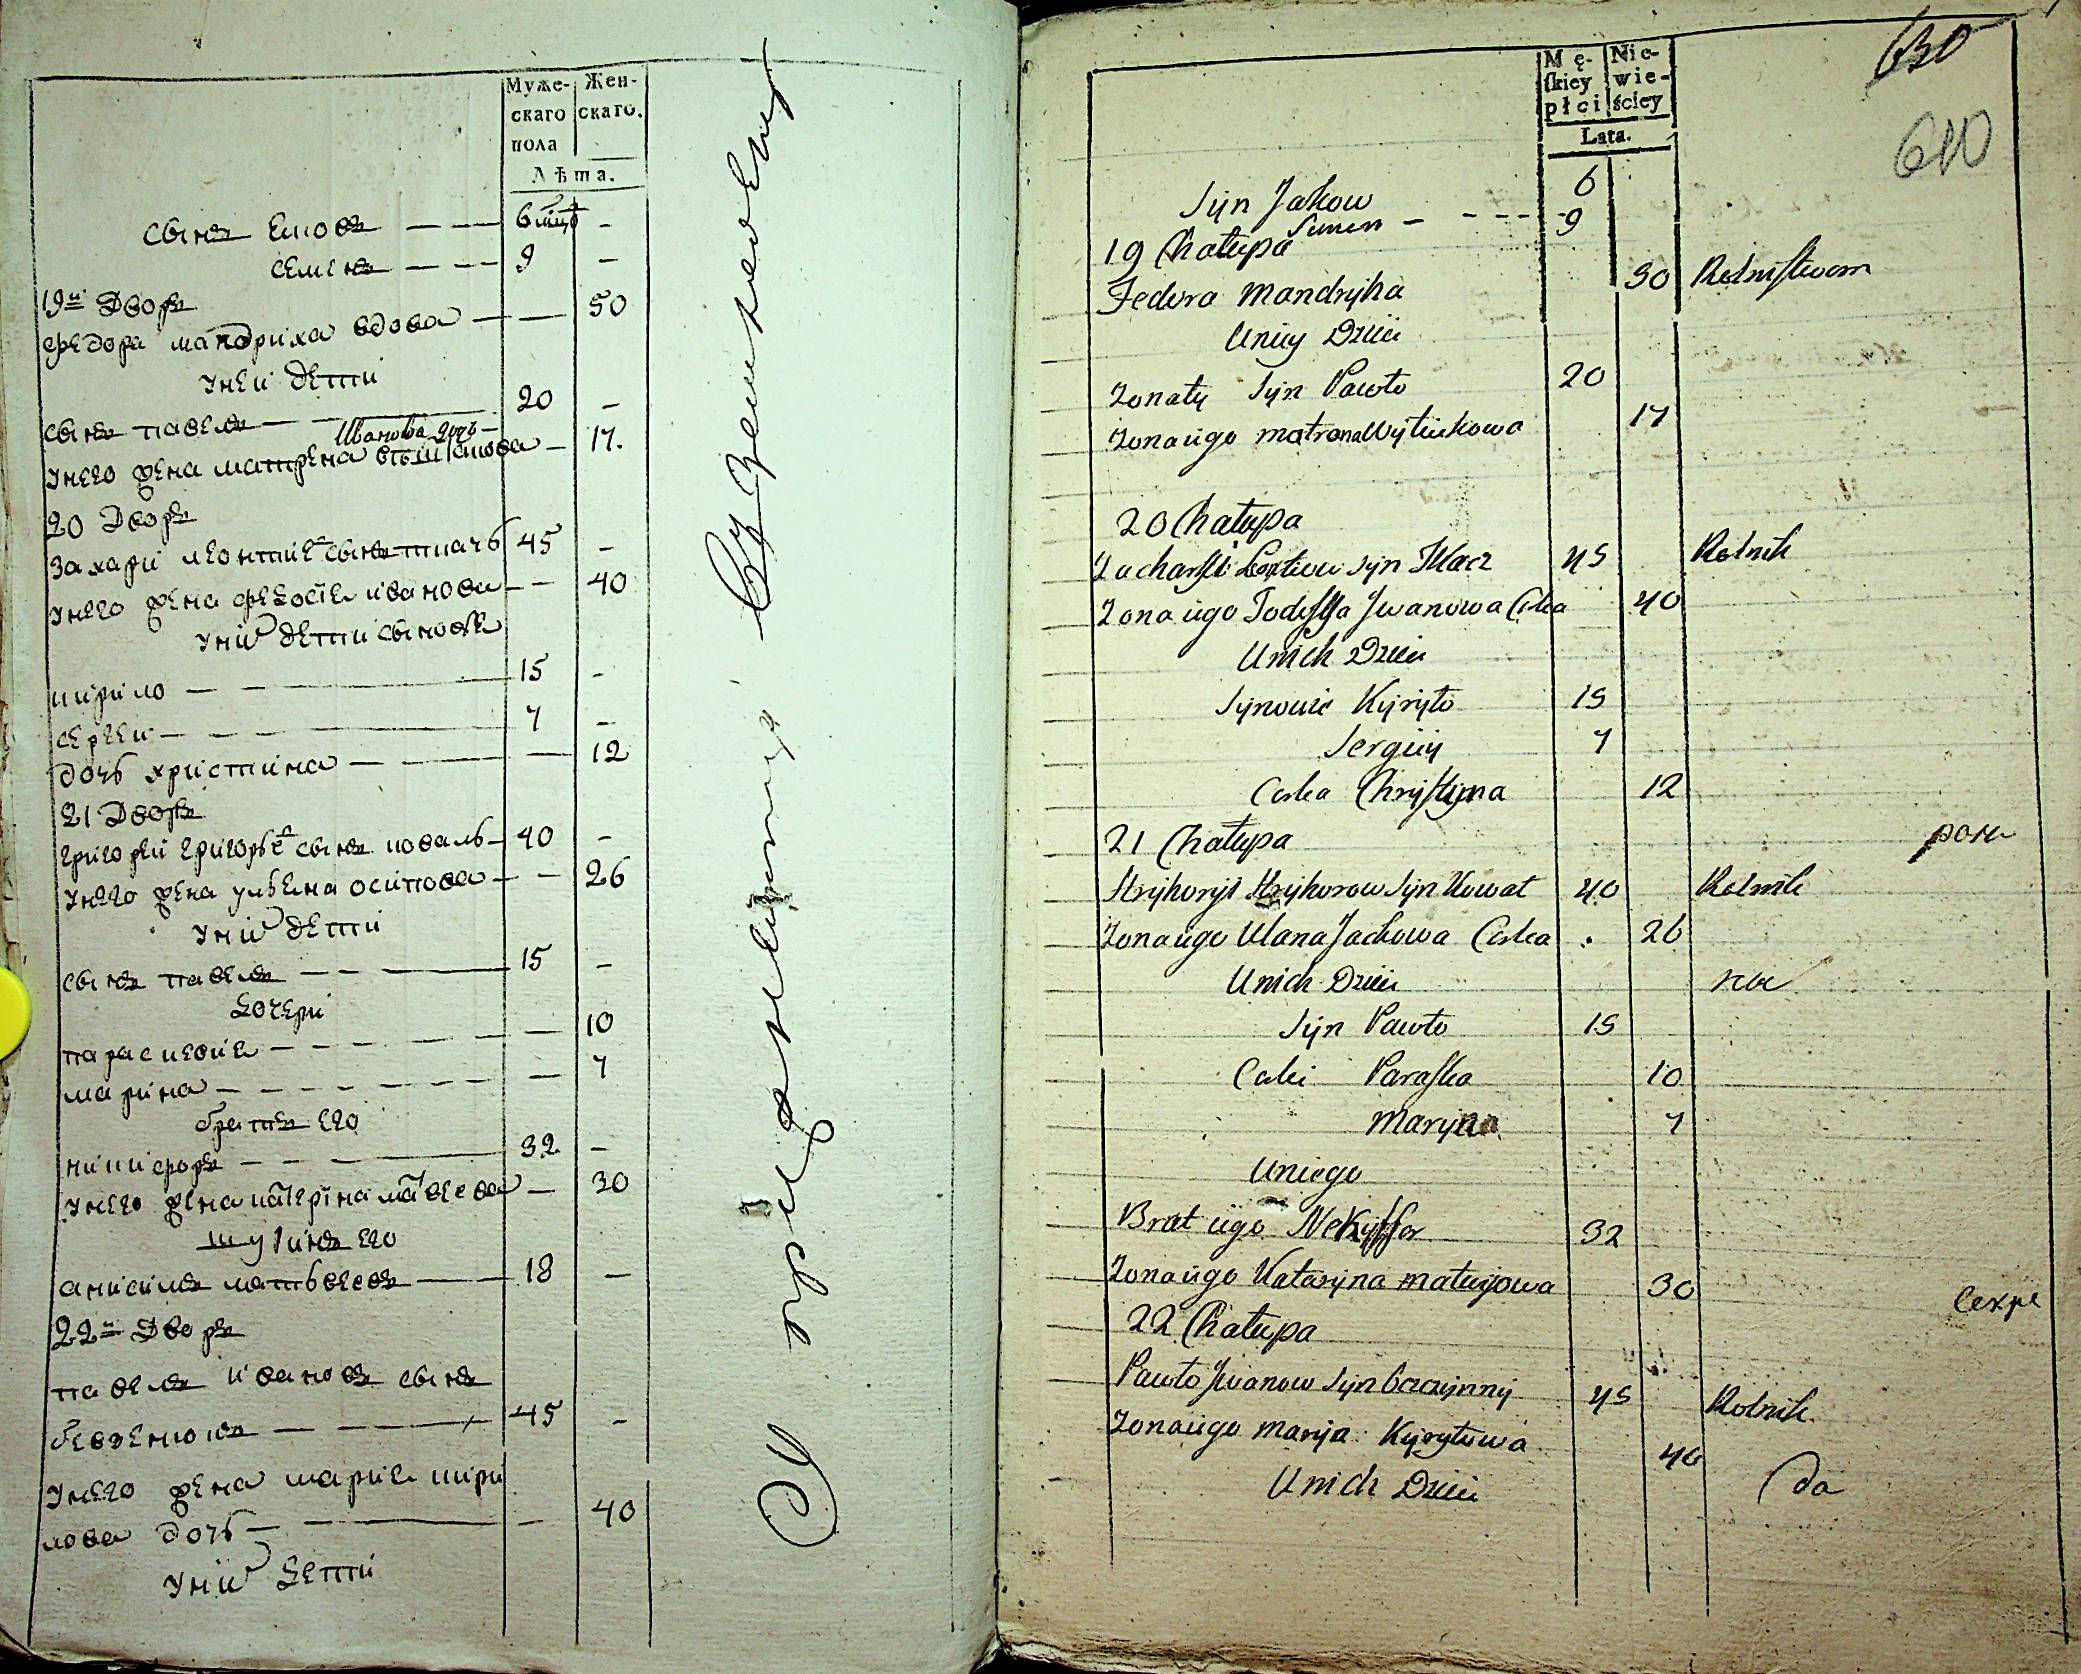 Муже-
скаго
пола
Жен-
скаго.
Лѣта.
сынъ Яковъ — — 6 —
семенъ — — — 9 —
19й Дворъ
федора мандриха вдова — — 50
унеи дети
сынъ павелъ — — 20 —
Иванова дочь
унего жена матрена — 17.
20 Дворъ
захари леонтиевъ сынъ ткачь 45 —
унего жена федосiя иванова — — 40
уних дети сыновя
кирило — — 15 —
сергеи — — — 7 —
дочь христина — — — 12
21 Дворъ
григореи григорьевъ сынъ коваль — 40 —
унего жена ульяна осипова — — 26
уних дети
сынъ павелъ — — — 15 —
Дочери
параскевия — — — — 10
марина — — — — — 7
братъ его
никифоръ — — — 32 —
унего жена катерiна матвеева — 30
шуринъ его
анисимъ матьвеевъ — 18 —
22й Дворъ
павелъ ивановъ сынъ
— — 45 —
унего жена мария кири
лова дочь — — — 40
уних Дети
Къ ревизской
Mę-
skiey
płci
Nie-
wie-
ściey
Lata.
630
610
Syn Jakow 6
Semen — - - - - 9
19 Chałupa
Fedora Mandryha 50 Rolnistwom
Uniey Dzieci
Zonaty Syn Pawło 20
Zona iego Matrona Wytiukowa 17
20 Chałupa
Zacharyi Leontiew Syn Tkacz 45 Rolnik
Zona iego Todosya Jwanowa Corka 40
Unich Dzieci
Synowie Kyryło 15
Sergiiy 7
Corka Chrystyna 12
21 Chałupa
Hryhoryi Hryhorow Syn Kowal 40 Rolnik
Zona iego Ulana Jackowa Corka . 26
Unich Dzieci
Syn Pawło 15
Corki Paraska 10
Maryna 7
Uniego
Brat iego Nekyffor 32
Zona iego Kataryna Matwijowa 30
22 Chałupa
Pawło Jwanow Syn 45 Rolnik
Zona iego Marya Kyryłowa 40
Unich Dzieci